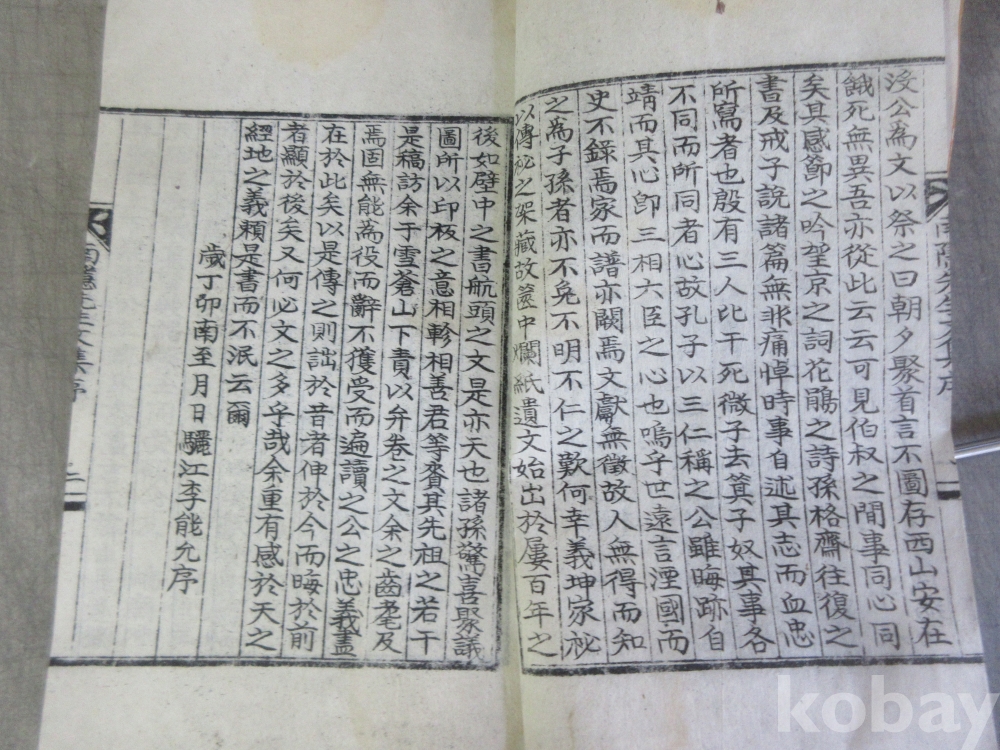 沒公為文以祭之曰朝夕聚首言不圖存西山安在
餓死無異吾亦從此云云可見伯叔之間事同心同
矣其感節之吟望京之詞花鵑之詩孫格齋往復之
書及戒子說諸篇無非痛悼時事自述其志而血忠
所寫者也殷有三人比干死微子去箕子奴其事各
不同而所同者心故孔子以三仁稱之公雖晦跡自
靖而其心卽三相六臣之心也嗚乎世遠言湮國而
史不錄焉家而譜亦闕焉文獻無徵故人無得而知
之為子孫者亦不免不明不仁之歎何幸義坤家祕
以傳祕之架藏故篋中爛紙遺文始出於屢百年之
後如壁中之書航頭之文是亦天也諸孫驚喜聚議
圖所以印板之意相軫相善君等賫其先祖之若干
是稿訪余于雪蒼山下責以弁卷之文余之齒耄及
焉固無能為役而辭不獲受而遍讀之公之忠義盡
在於此矣以是傳之則詘於昔者伸於今而晦於前
者顯於後矣又何必文之多乎哉余重有感於天之
經地之義賴是書而不泯云爾
歲丁卯南至月日驪江李能允序
南隱先生文集序
二
kobay